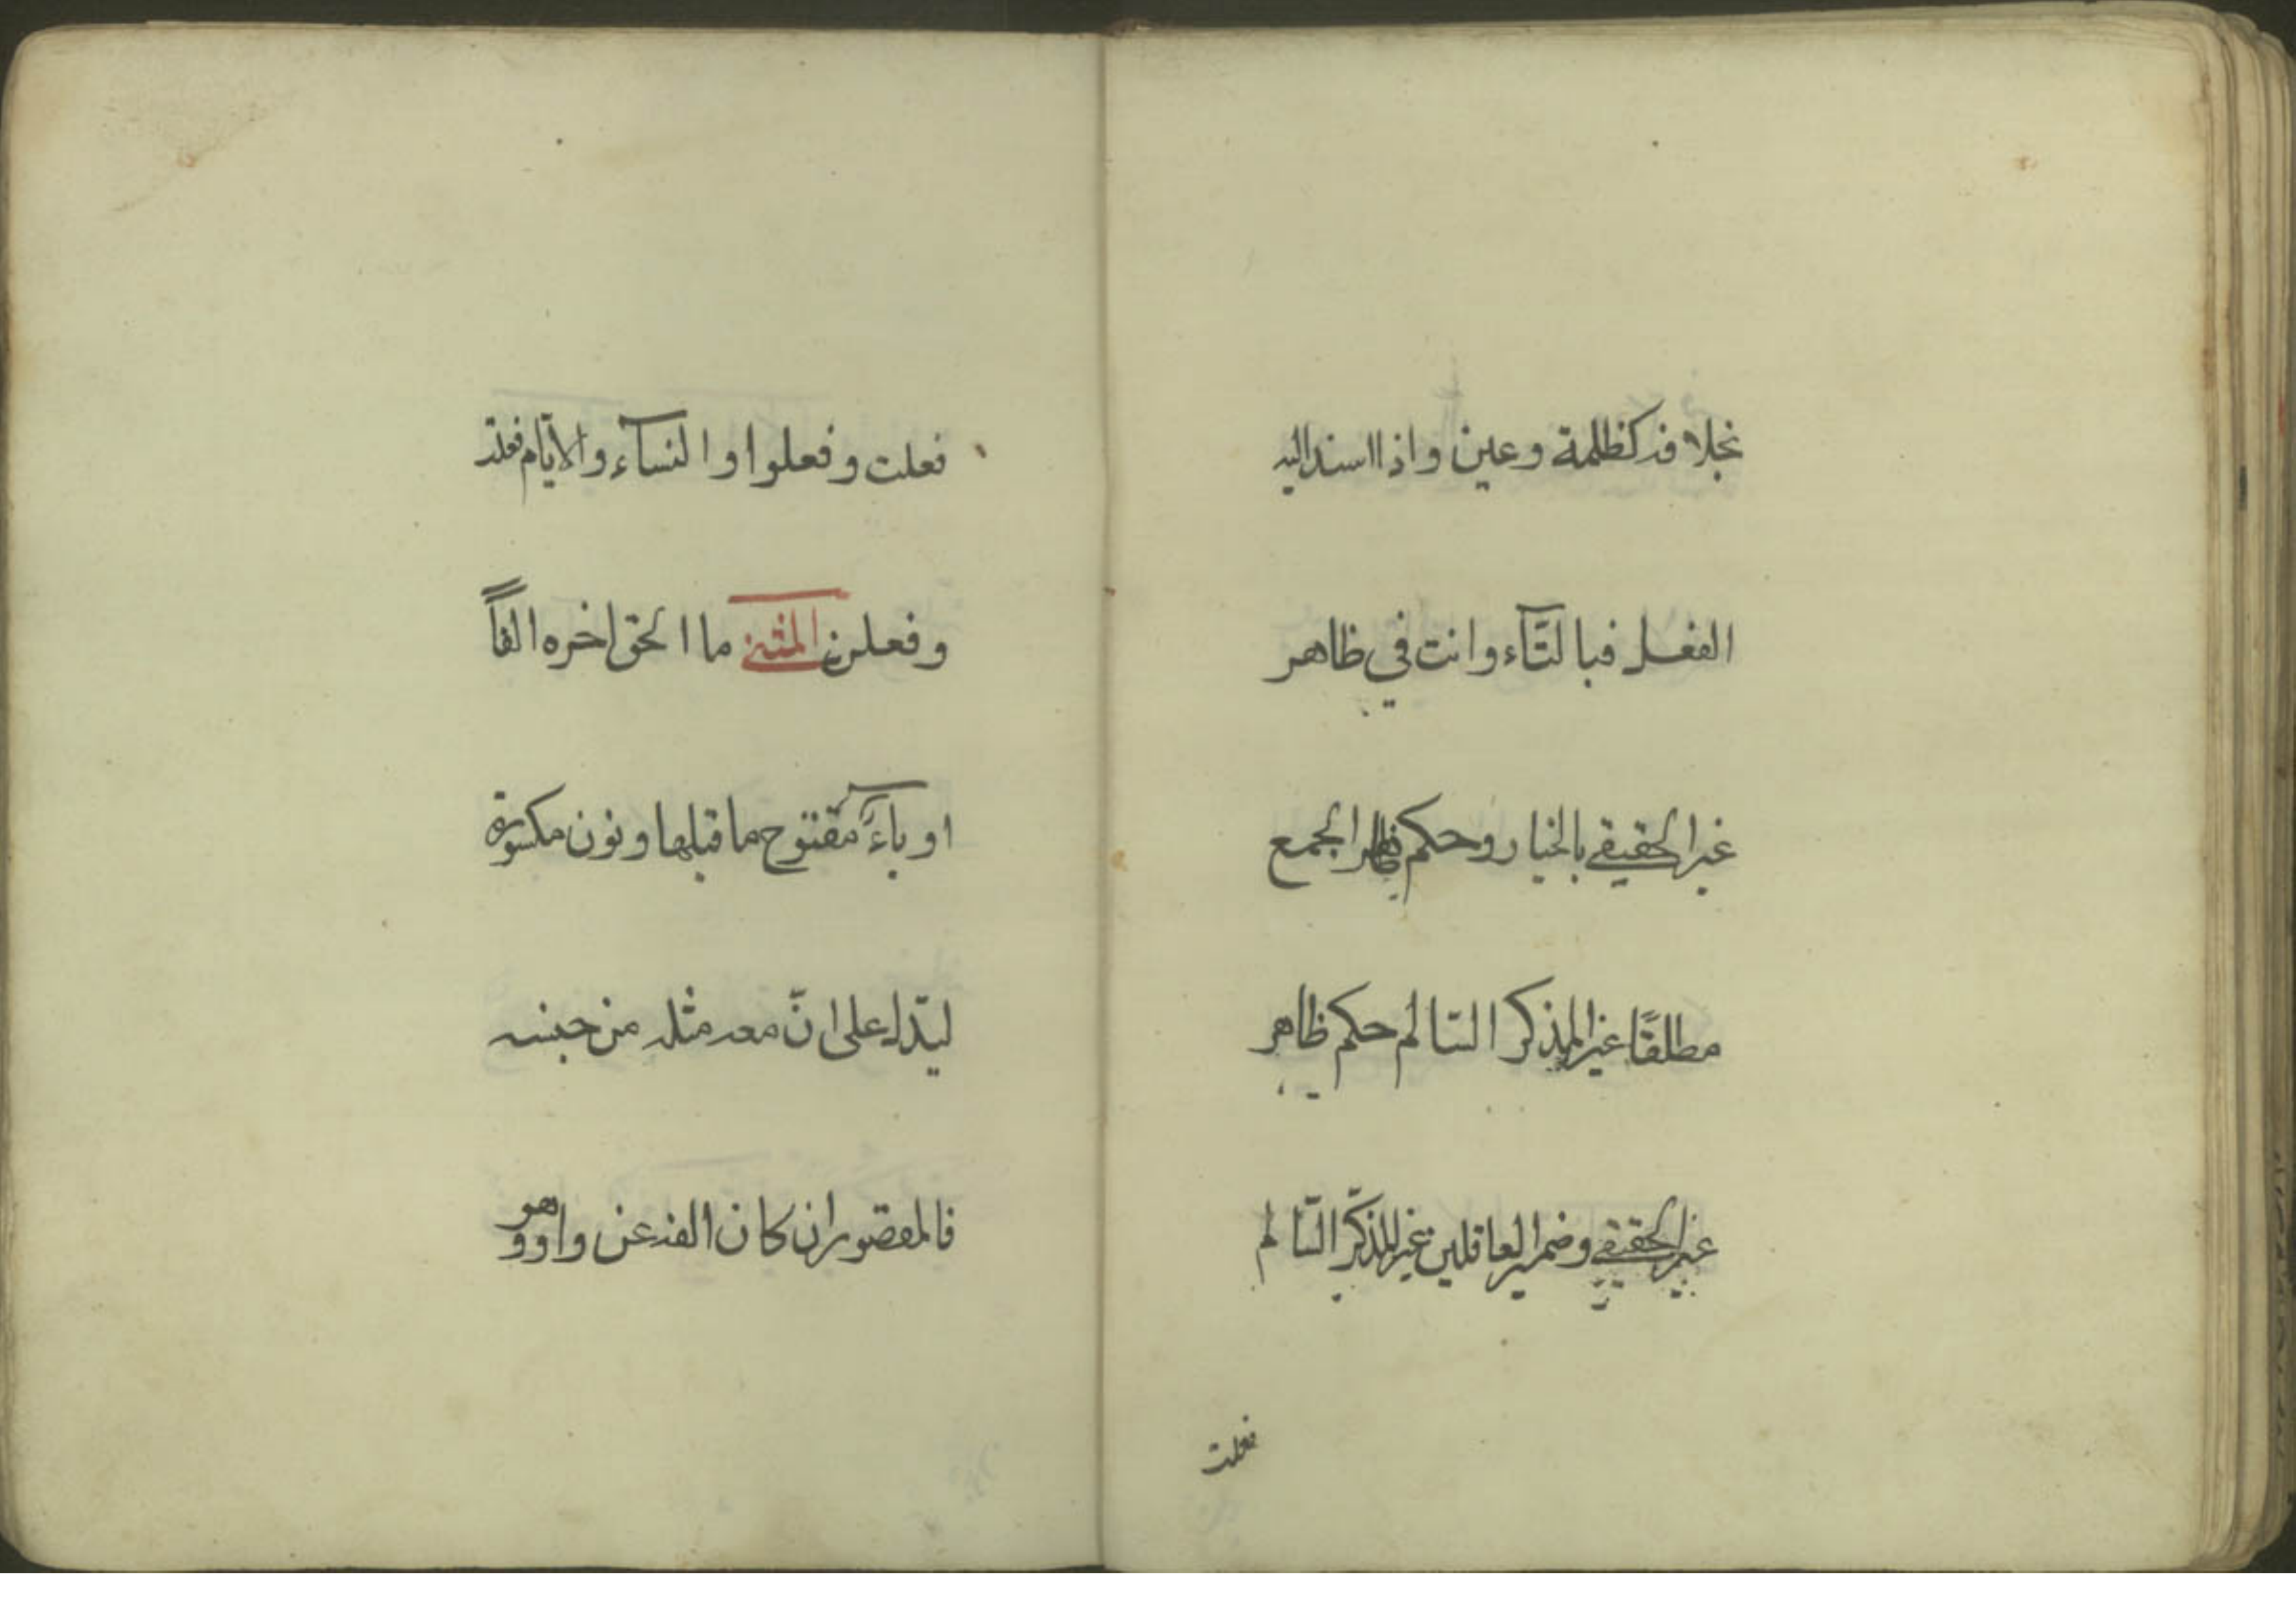 بخلافه كظلمة وعين واذا اسند اليه
الفعل فبالتّاء وانت في ظاهر
غير الحقيقي بالخيار وحكم ظاهر الجمع
مطلقًا غير المذكر السّالم حكم ظاهر
غير الحقيقي وضمير العاقلين غير المذكّر السّالم
فعلت
فعلت وفعلوا والنسآء والايّام فعلت
وفعلن المثنى ما الحق اخره الفاً
او ياءٌ مفتوح ما قبلها ونون مكسورة
ليدّل على انّ معه مثله من جنسه
فالمقصور ان كان الفه عن واو وهو